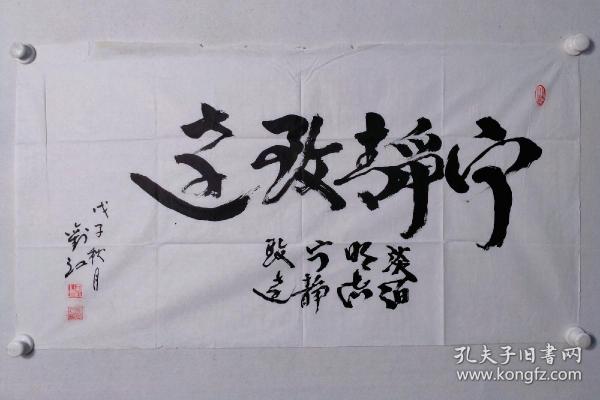 宁静致远
淡泊
明志
宁静
致远
戊子秋月
刘江
孔夫子旧书网
www.kongfz.com